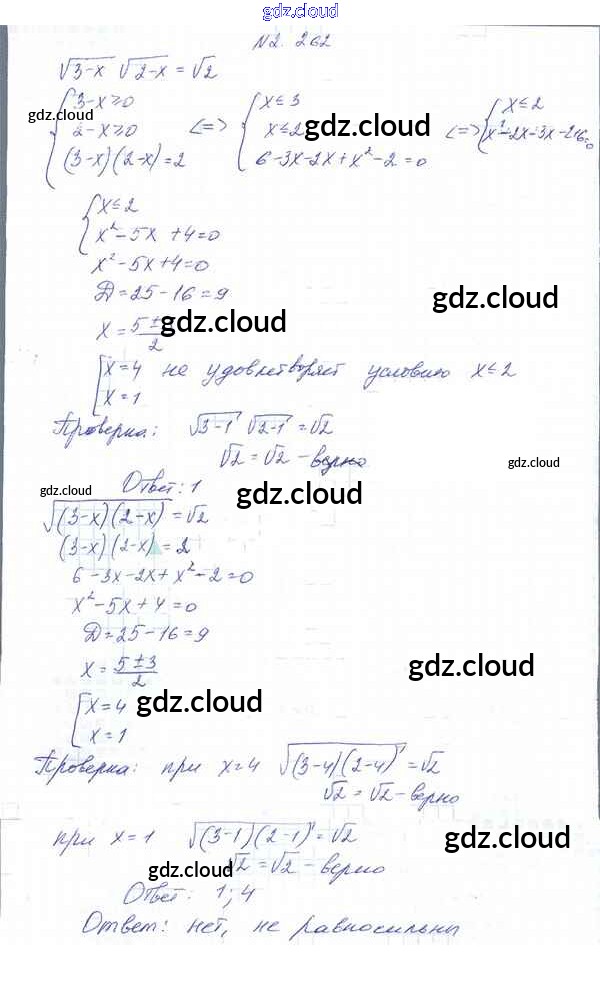 gdz.cloud
gdz.cloud
N2. 262
√3-x √2-x = √2
{3-x≥0 {x≤3 {x≤2
gdz.cloud
2-x≥0 <=> x≤2 gdz.cloud <=>
(3-x)(2-x)=2 6-3x-2x+x²-2=0
{x≤2
x²-5x+4=0
x²-5x+4=0
Д=25-16=9 gdz.cloud
x=5± gdz.cloud
2
[x=4 не удовлетворяет условию x≤2
x=1
Проверка: √3-1 √2-1 = √2
√2=√2 - верно
gdz.cloud
Ответ: 1
gdz.cloud gdz.cloud
√(3-x)(2-x) = √2
(3-x)(2-x)=2
6-3x-2x+x²-2=0
x²-5x+4=0
Д=25-16=9
x=5±3 gdz.cloud
2
[x=4 gdz.cloud
x=1
Проверка: при x=4 √(3-4)(2-4) = √2
√2=√2 - верно
при x=1 √(3-1)(2-1) = √2 gdz.cloud
gdz.cloud √2=√2 - верно
Ответ: 1; 4
Ответ: нет, не равносильны